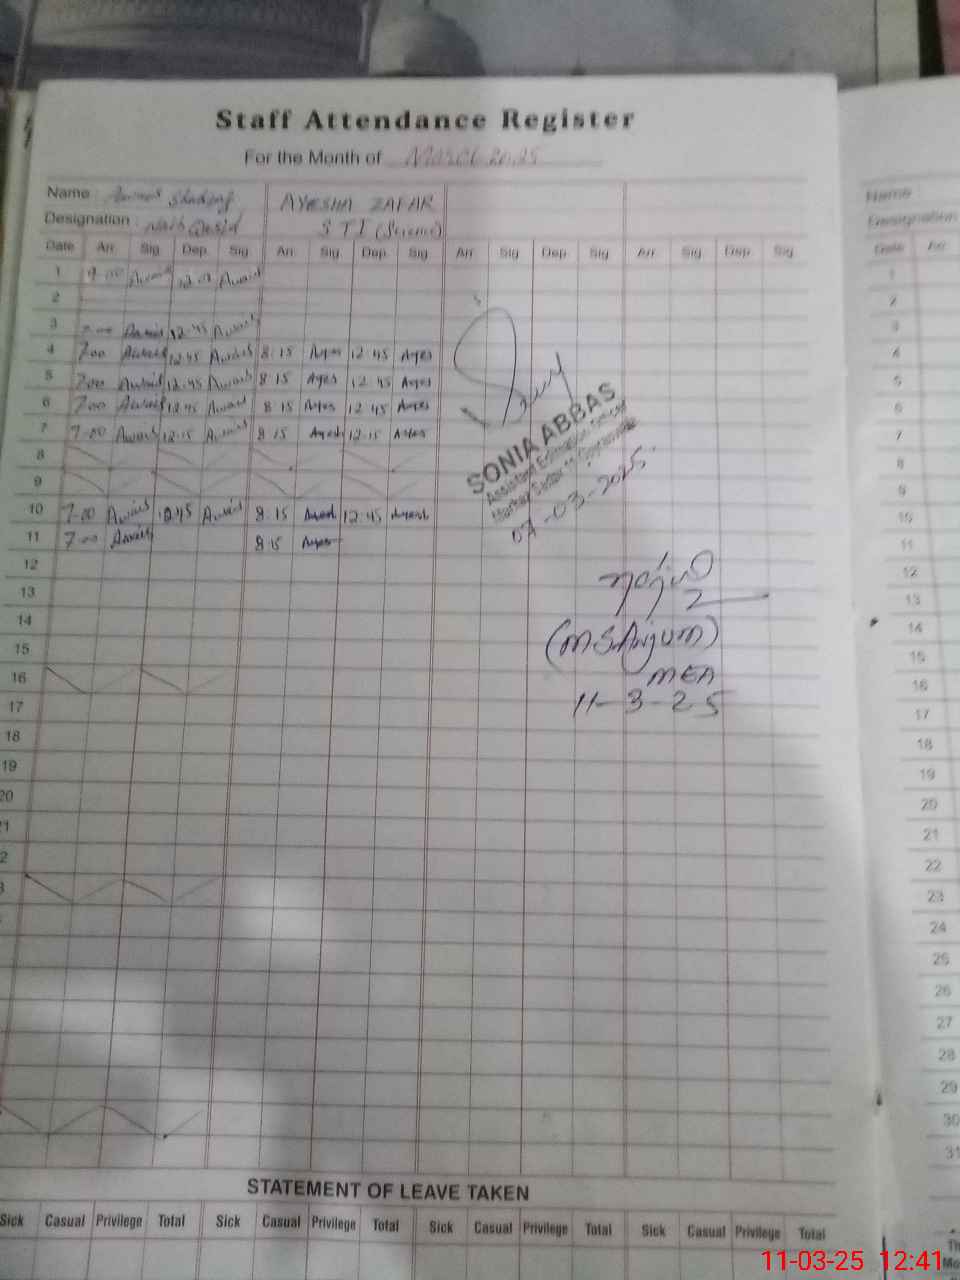 Staff Attendance Register
For the Month of March 2025
Name AYESHA ZAFAR
Designation Naib Qasid STI (Science)
Date Arr. Sig Dep. Sig Arr. Sig Dep. Sig Arr. Sig Dep. Sig Arr. Sig Dep. Sig
1 9.00 Awais Awais
2
3 7.00 Awais 12.45 Awais
4 7.00 Awais 12.45 Awais 8:15 Ayes 12.45 Ayes
5 7.00 Awais 12.45 Awais 8:15 Ayes 12.45 Ayes
6 7.00 Awais 12.45 Awais 8:15 Ayes 12.45 Ayes
7 7.00 Awais 12.15 Awais 8:15 Ayes 12.15 Ayes
8
9
10 7.00 Awais 12.45 Awais 8:15 12.45
11 7.00 Awais 8:15 Ayes
12
13
14
15
16
17
18
19
20
SONIA ABBAS
Assistant Education Officer
07-03-2025.
(M.S.Anjum)
MEA
11-3-25
STATEMENT OF LEAVE TAKEN
Sick Casual Privilege Total Sick Casual Privilege Total Sick Casual Privilege Total Sick Casual Privilege Total
Name
Designation
Date Arr.
1
2
3
4
5
6
7
8
9
10
11
12
13
14
15
16
17
18
19
20
21
22
23
24
25
26
27
28
29
30
31
11-03-25 12:41